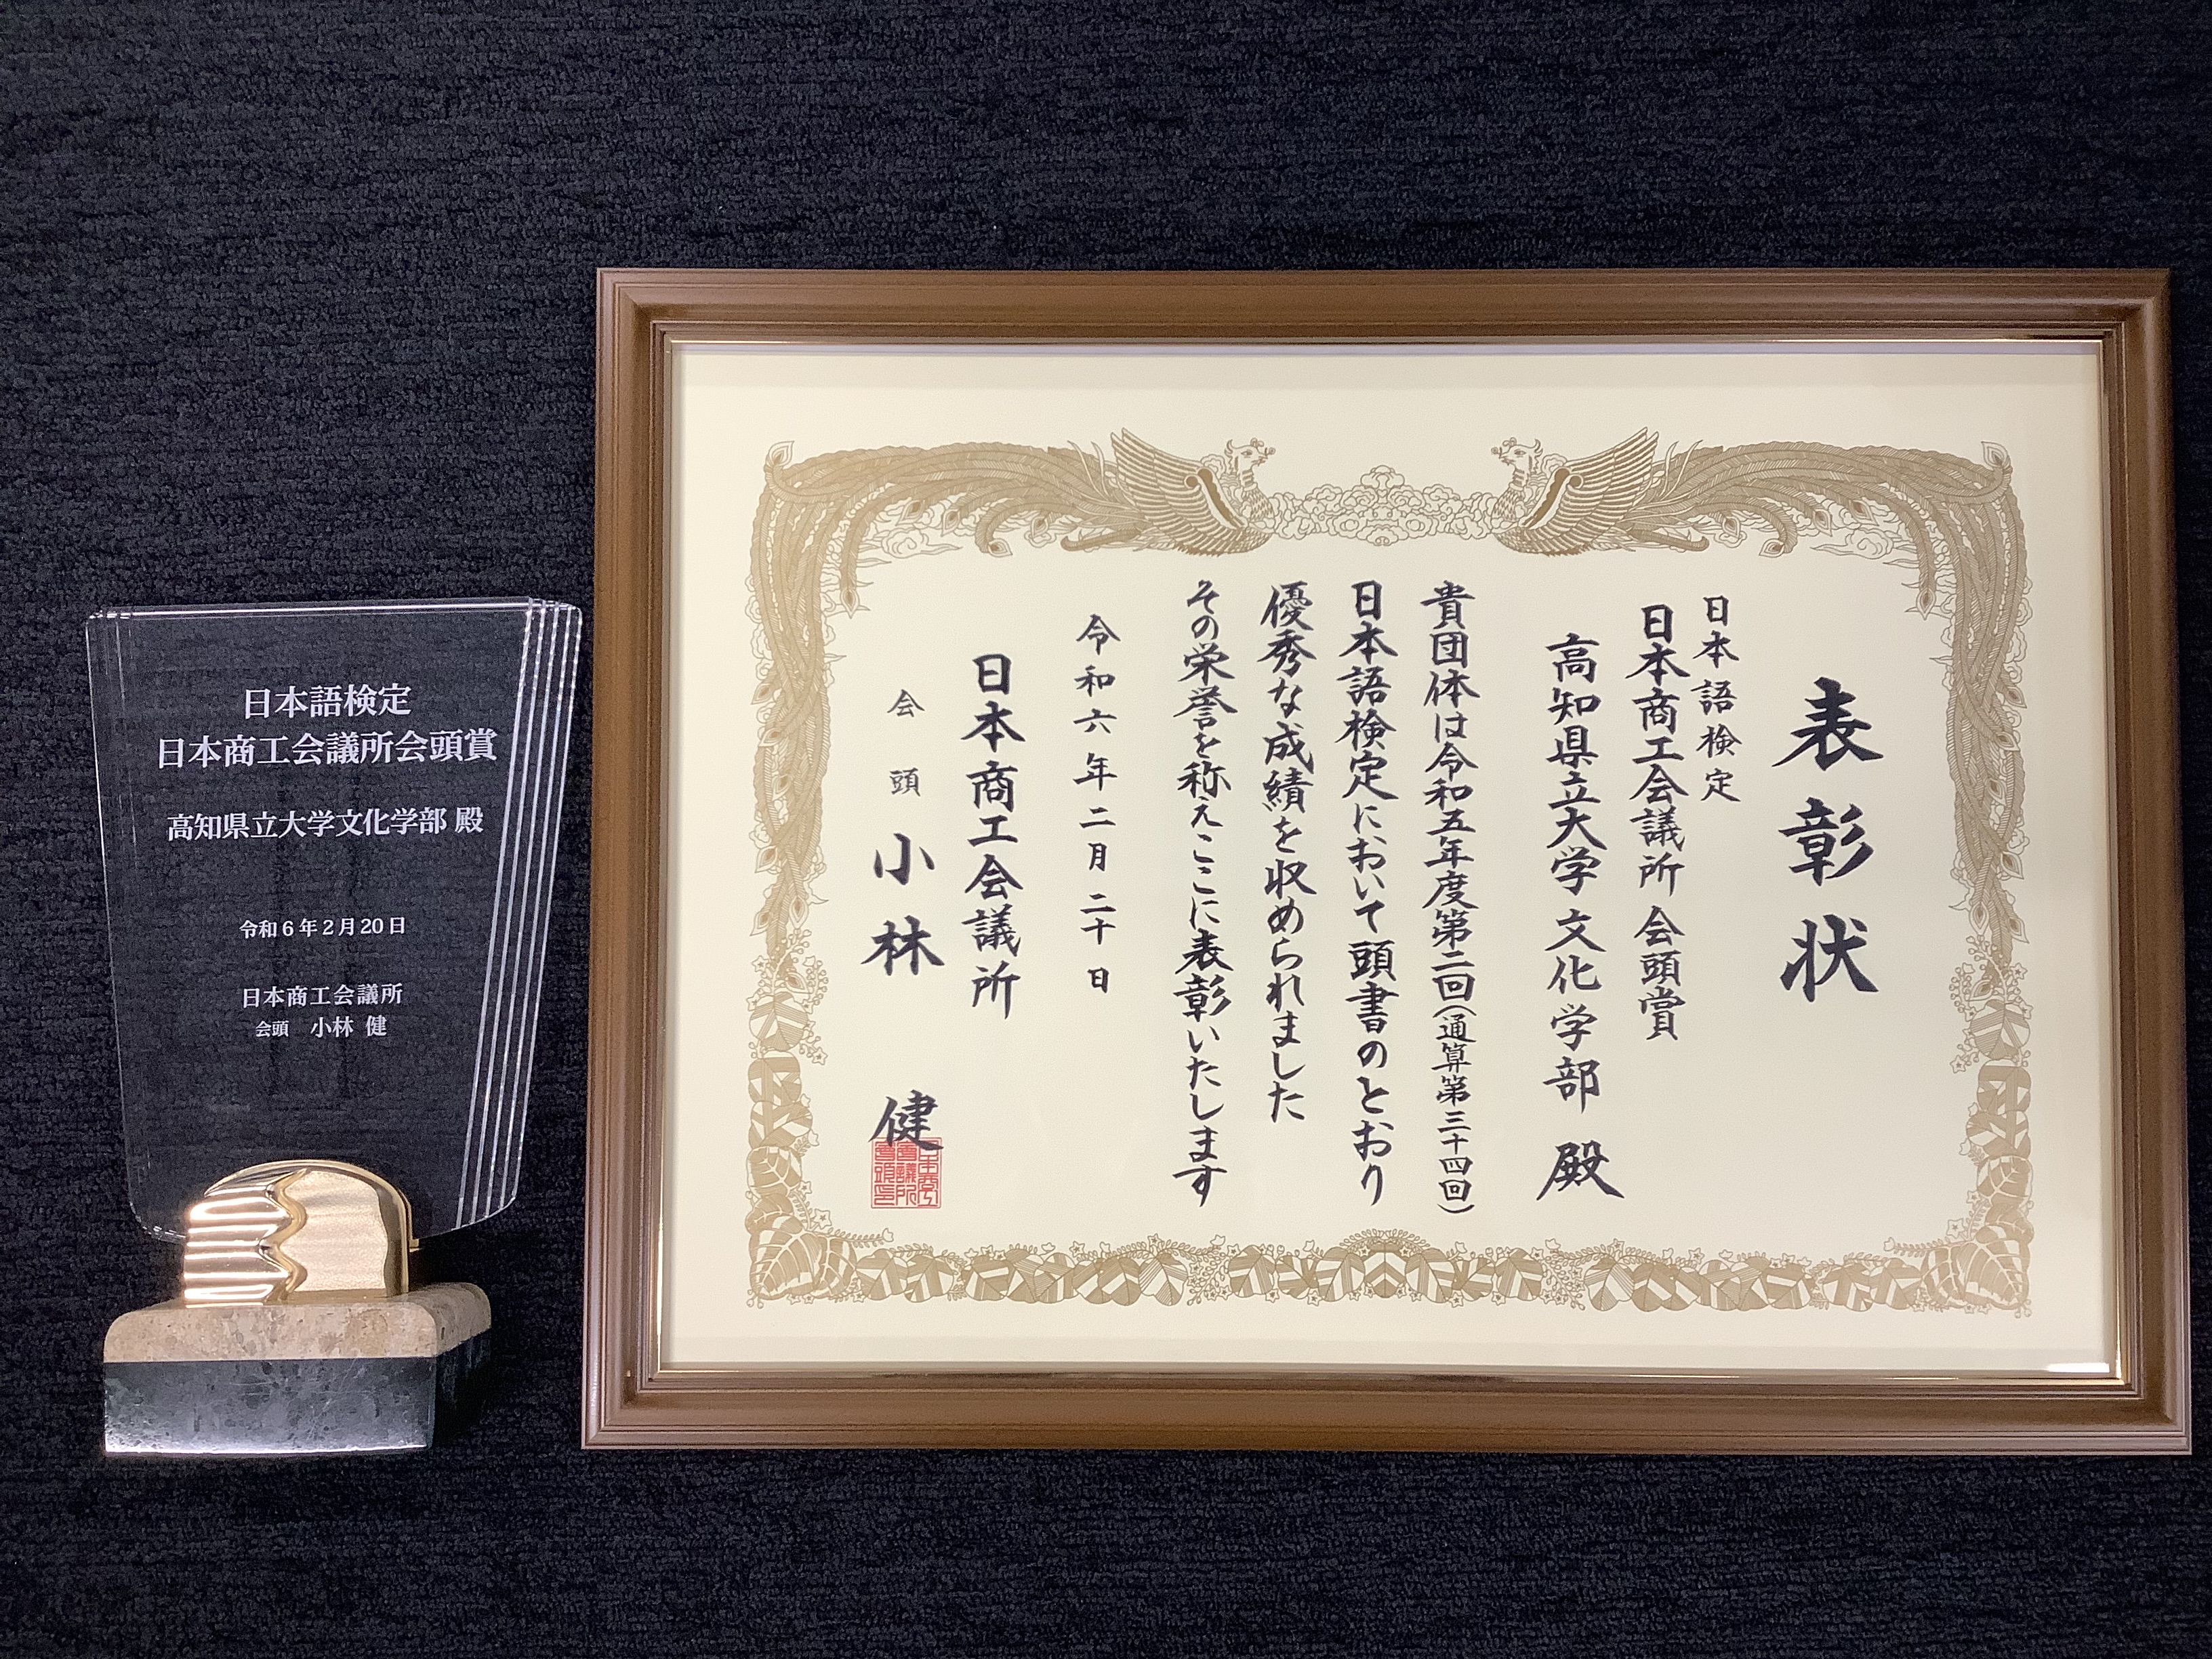 日本語検定
日本商工会議所会頭賞
高知県立大学文化学部 殿
令和6年2月20日
日本商工会議所
会頭 小林 健
表彰状
日本語検定
日本商工会議所 会頭賞
高知県立大学 文化学部 殿
貴団体は令和五年度第二回(通算第三十四回)
日本語検定において頭書のとおり
優秀な成績を収められました
その栄誉を称えここに表彰いたします
令和六年二月二十日
日本商工会議所
会頭 小林 健